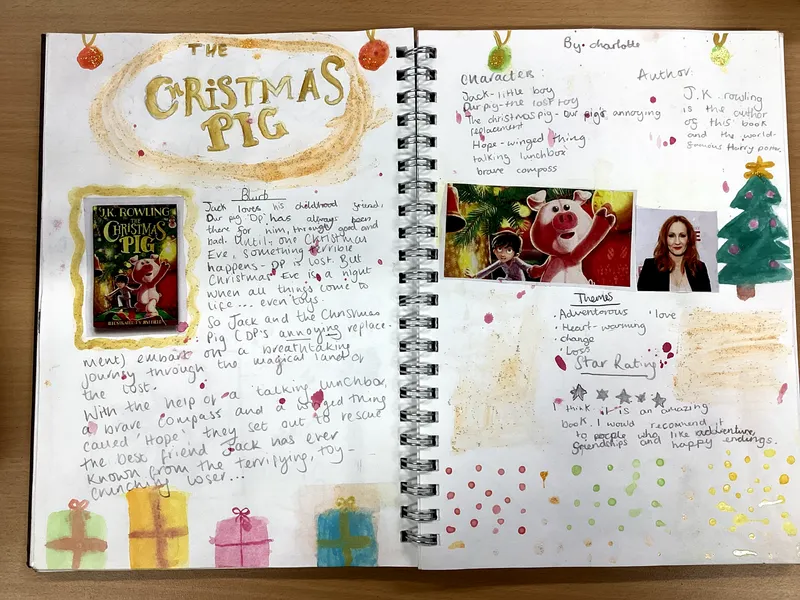 THE
CHRISTMAS
PIG
Blurb
Jack loves his childhood friend,
Dur pig. DP has always been
there for him, through good and
bad. Until, one Christmas
Eve, something terrible
happens - DP is lost. But
Christmas Eve is a night
when all things come to
life... even toys.
So Jack and the Christmas
Pig (DP's annoying replace-
ment) embark on a breathtaking
journey through the magical land of
the Lost.
With the help of a talking lunchbox,
a brave compass and a winged thing
called 'Hope', they set out to rescue
the best friend Jack has ever
known from the terrifying, toy-
crunching loser...
J.K. ROWLING
THE
CHRISTMAS
PIG
By charlotte
Characters:
Jack - little boy
Dur pig - the lost toy
The christmas pig - Dur pig's annoying
replacement
Hope - winged thing
talking lunchbox
brave compass
Author:
J.K. rowling
is the author
of this book
and the world-
famous Harry potter.
Themes
· Adventorous
· love
· Heart-warming
· change
· Loss
Star Rating
I think it is an amazing
book. I would recommend it
to people who like adventure,
friendships and happy endings.